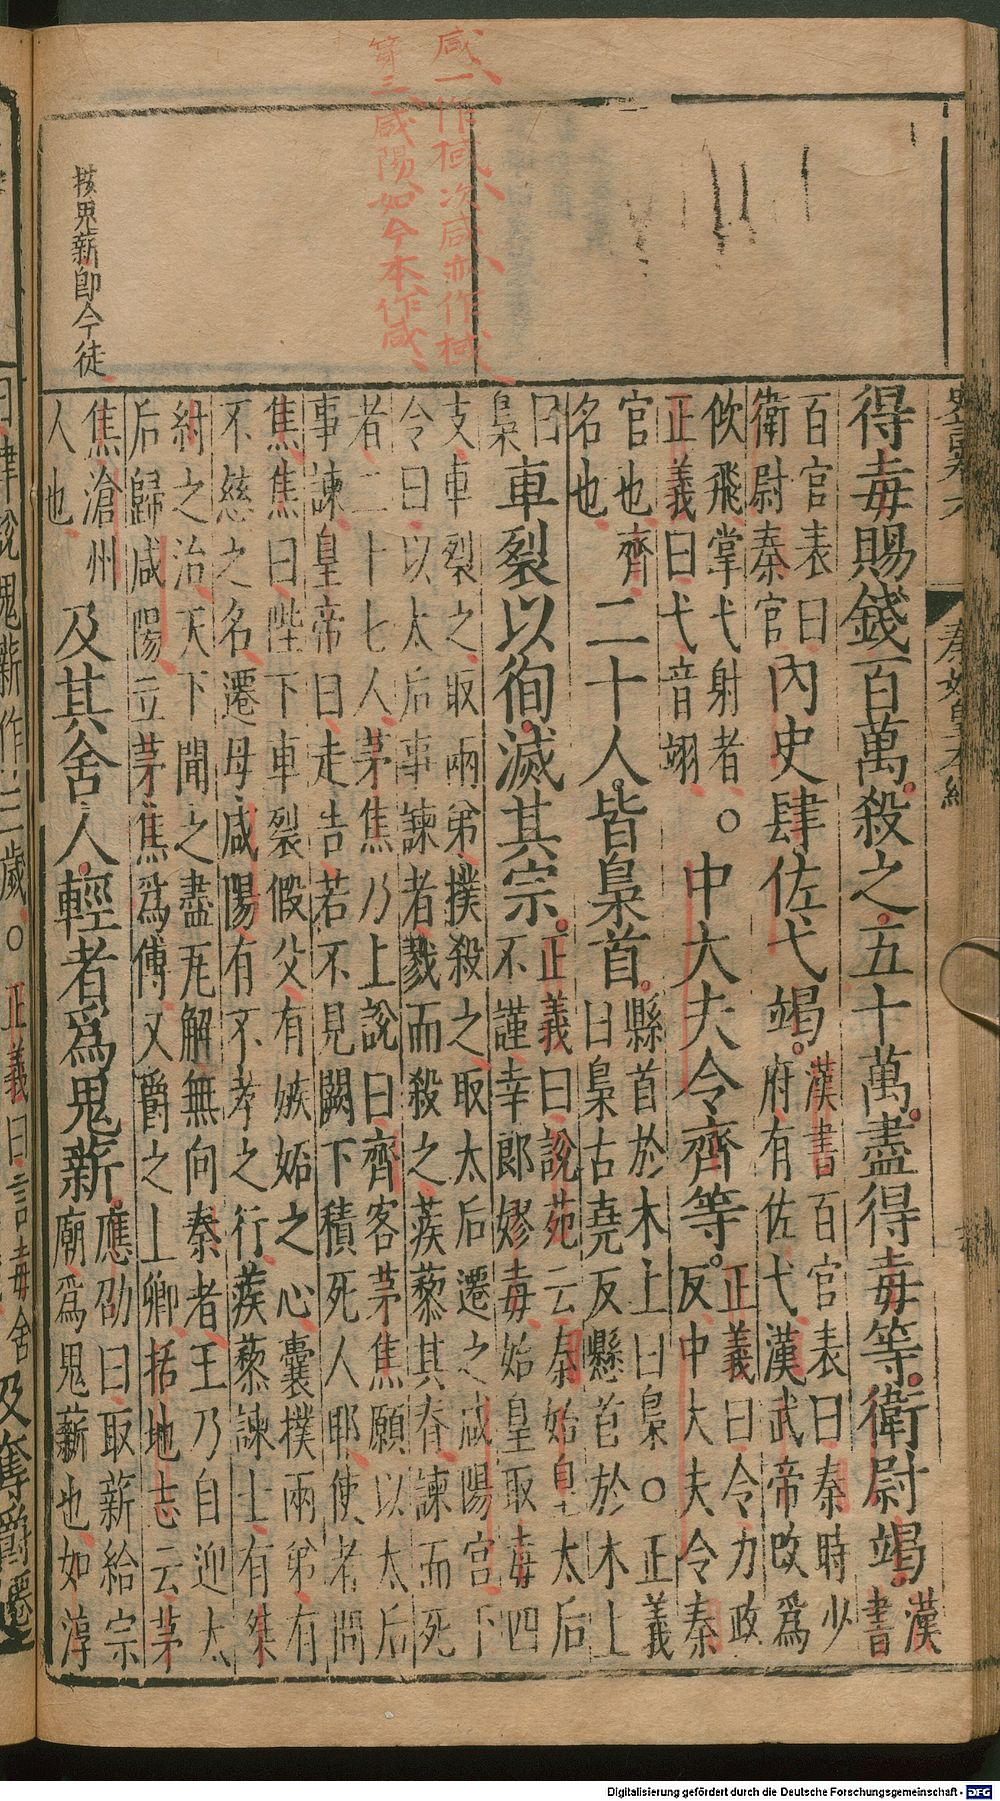 咸一作械次咸亦作械
第三咸陽如今本作咸
按鬼薪即今徒
得毐賜錢百萬。殺之。五十萬。盡得毐等。衛尉竭。漢
書
百官表曰
衛尉秦官
內史肆佐弋竭。漢書百官表曰秦時少
府有佐弋漢武帝改爲
佽飛掌弋射者。○
正義曰弋音翊
中大夫令齊等。正義曰令力政
反中大夫令秦
官也齊
名也
二十人。皆梟首。縣首於木上曰梟○正義
曰梟古堯反懸首於木上
曰
梟
車裂以徇。滅其宗。正義曰說苑云秦始皇太后
不謹幸郎嫪毐始皇取毐四
支車裂之取兩弟撲殺之取太后遷之咸陽宮下
令曰以太后事諫者戮而殺之蒺藜其脊諫而死
者二十七人茅焦乃上說曰齊客茅焦願以太后
事諫皇帝曰走告若不見闕下積死人耶使者問
焦焦曰陛下車裂假父有嫉妬之心囊撲兩弟有
不慈之名遷母咸陽有不孝之行蒺藜諫士有桀
紂之治天下聞之盡瓦解無向秦者王乃自迎太
后歸咸陽立茅焦爲傅又爵之上卿括地志云茅
焦滄州
人也
及其舍人。輕者爲鬼薪。應劭曰取薪給宗
廟爲鬼薪也如淳
曰律說鬼薪作三歲○正義曰言毐舍
及奪爵遷
Digitalisierung gefördert durch die Deutsche Forschungsgemeinschaft - DFG